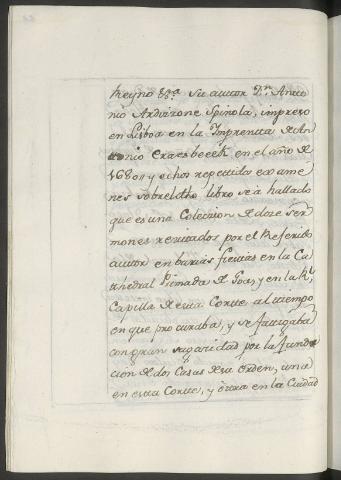 Reyno &.ª Su autor D.n Anto
nio Ardizone Spinola, impreso
en Lisboa en la Imprenta de An
tonio Craesbeeck en el año de
1680,, y echos repetidos exame
nes sobre dho libro se á hallado
que es una Coleccion de doze ser
mones revistados por el Referido
autor en barias fiestas en la Ca
thedral Primada de Goa, y en la R.l
Capilla de esta Corte al tiempo
en que procuraba, y se fatigaba
con gran sagacidad por la funda
cion de dos Casas de su Orden, una
en esta Corte, y otra en la Ciudad